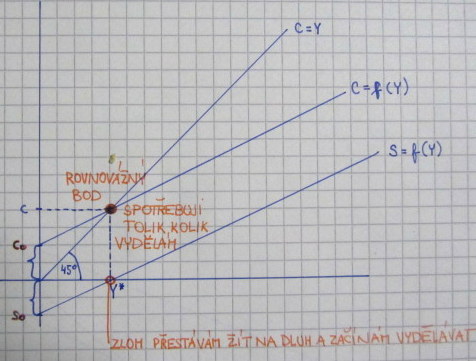 C=Y
C=f(Y)
S=f(Y)
ROVNOVÁŽNÝ
BOD
C
SPOTŘEBUJI
TOLIK, KOLIK
VYDĚLÁM
C₀
45°
Y*
S₀
ZLOM PŘESTÁVÁM ŽÍT NA DLUH A ZAČÍNÁM VYDĚLÁVAT